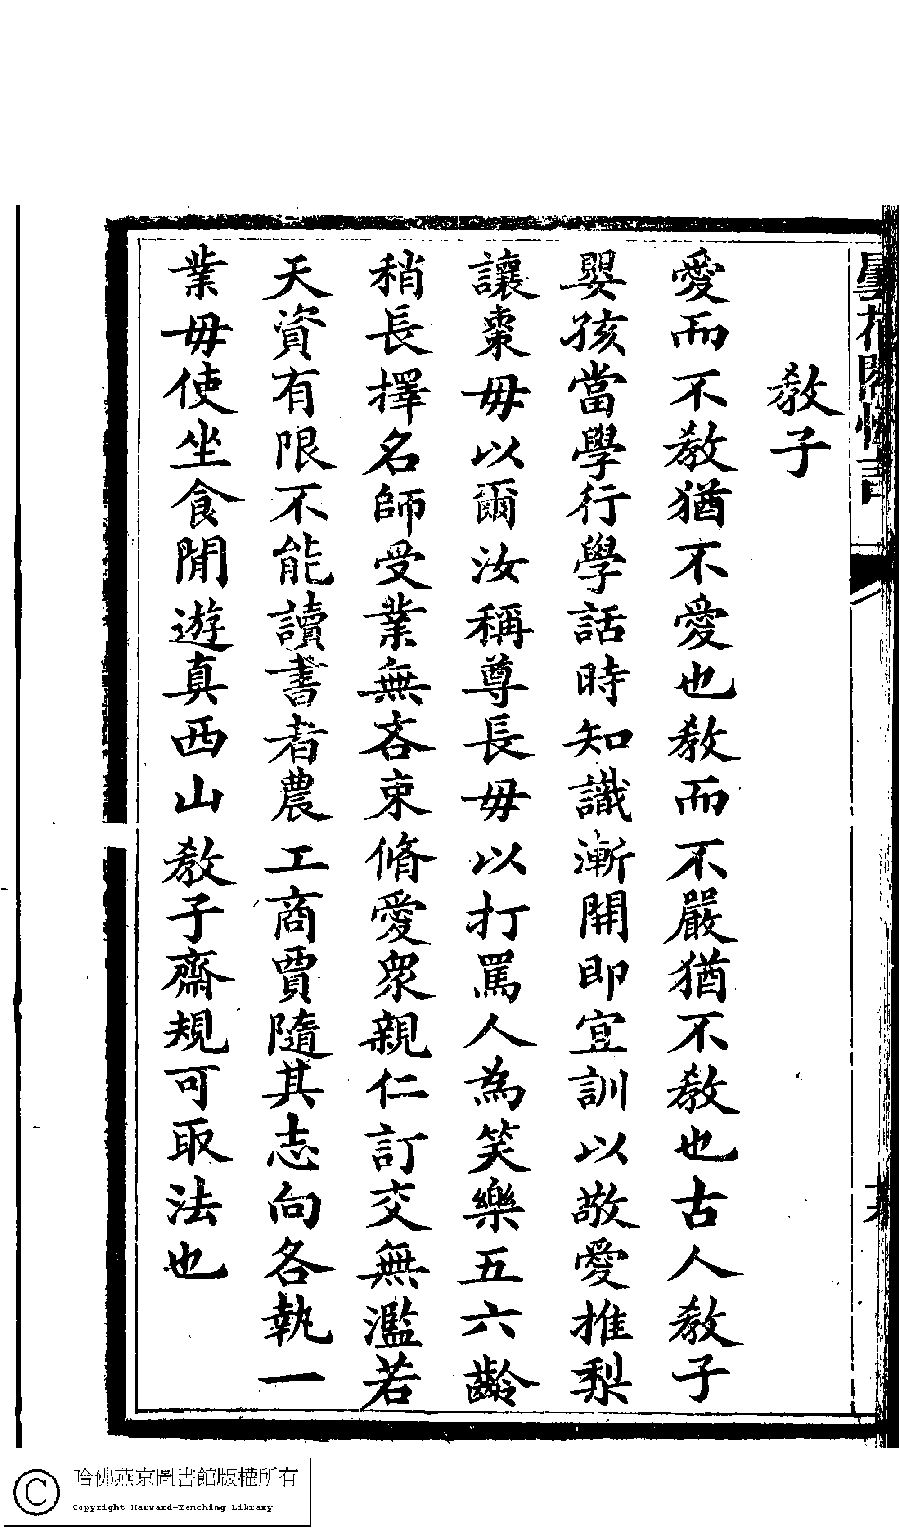 教子
愛而不教猶不愛也教而不嚴猶不教也古人教子
嬰孩當學行學話時知識漸開即宜訓以敬愛推梨
讓棗毋以爾汝稱尊長毋以打罵人為笑樂五六齡
稍長擇名師受業無吝束脩愛衆親仁訂交無濫若
天資有限不能讀書者農工商賈隨其志向各執一
業毋使坐食閒遊真西山教子齋規可取法也
哈佛燕京圖書館版權所有
Copyright Harvard-Yenching Library